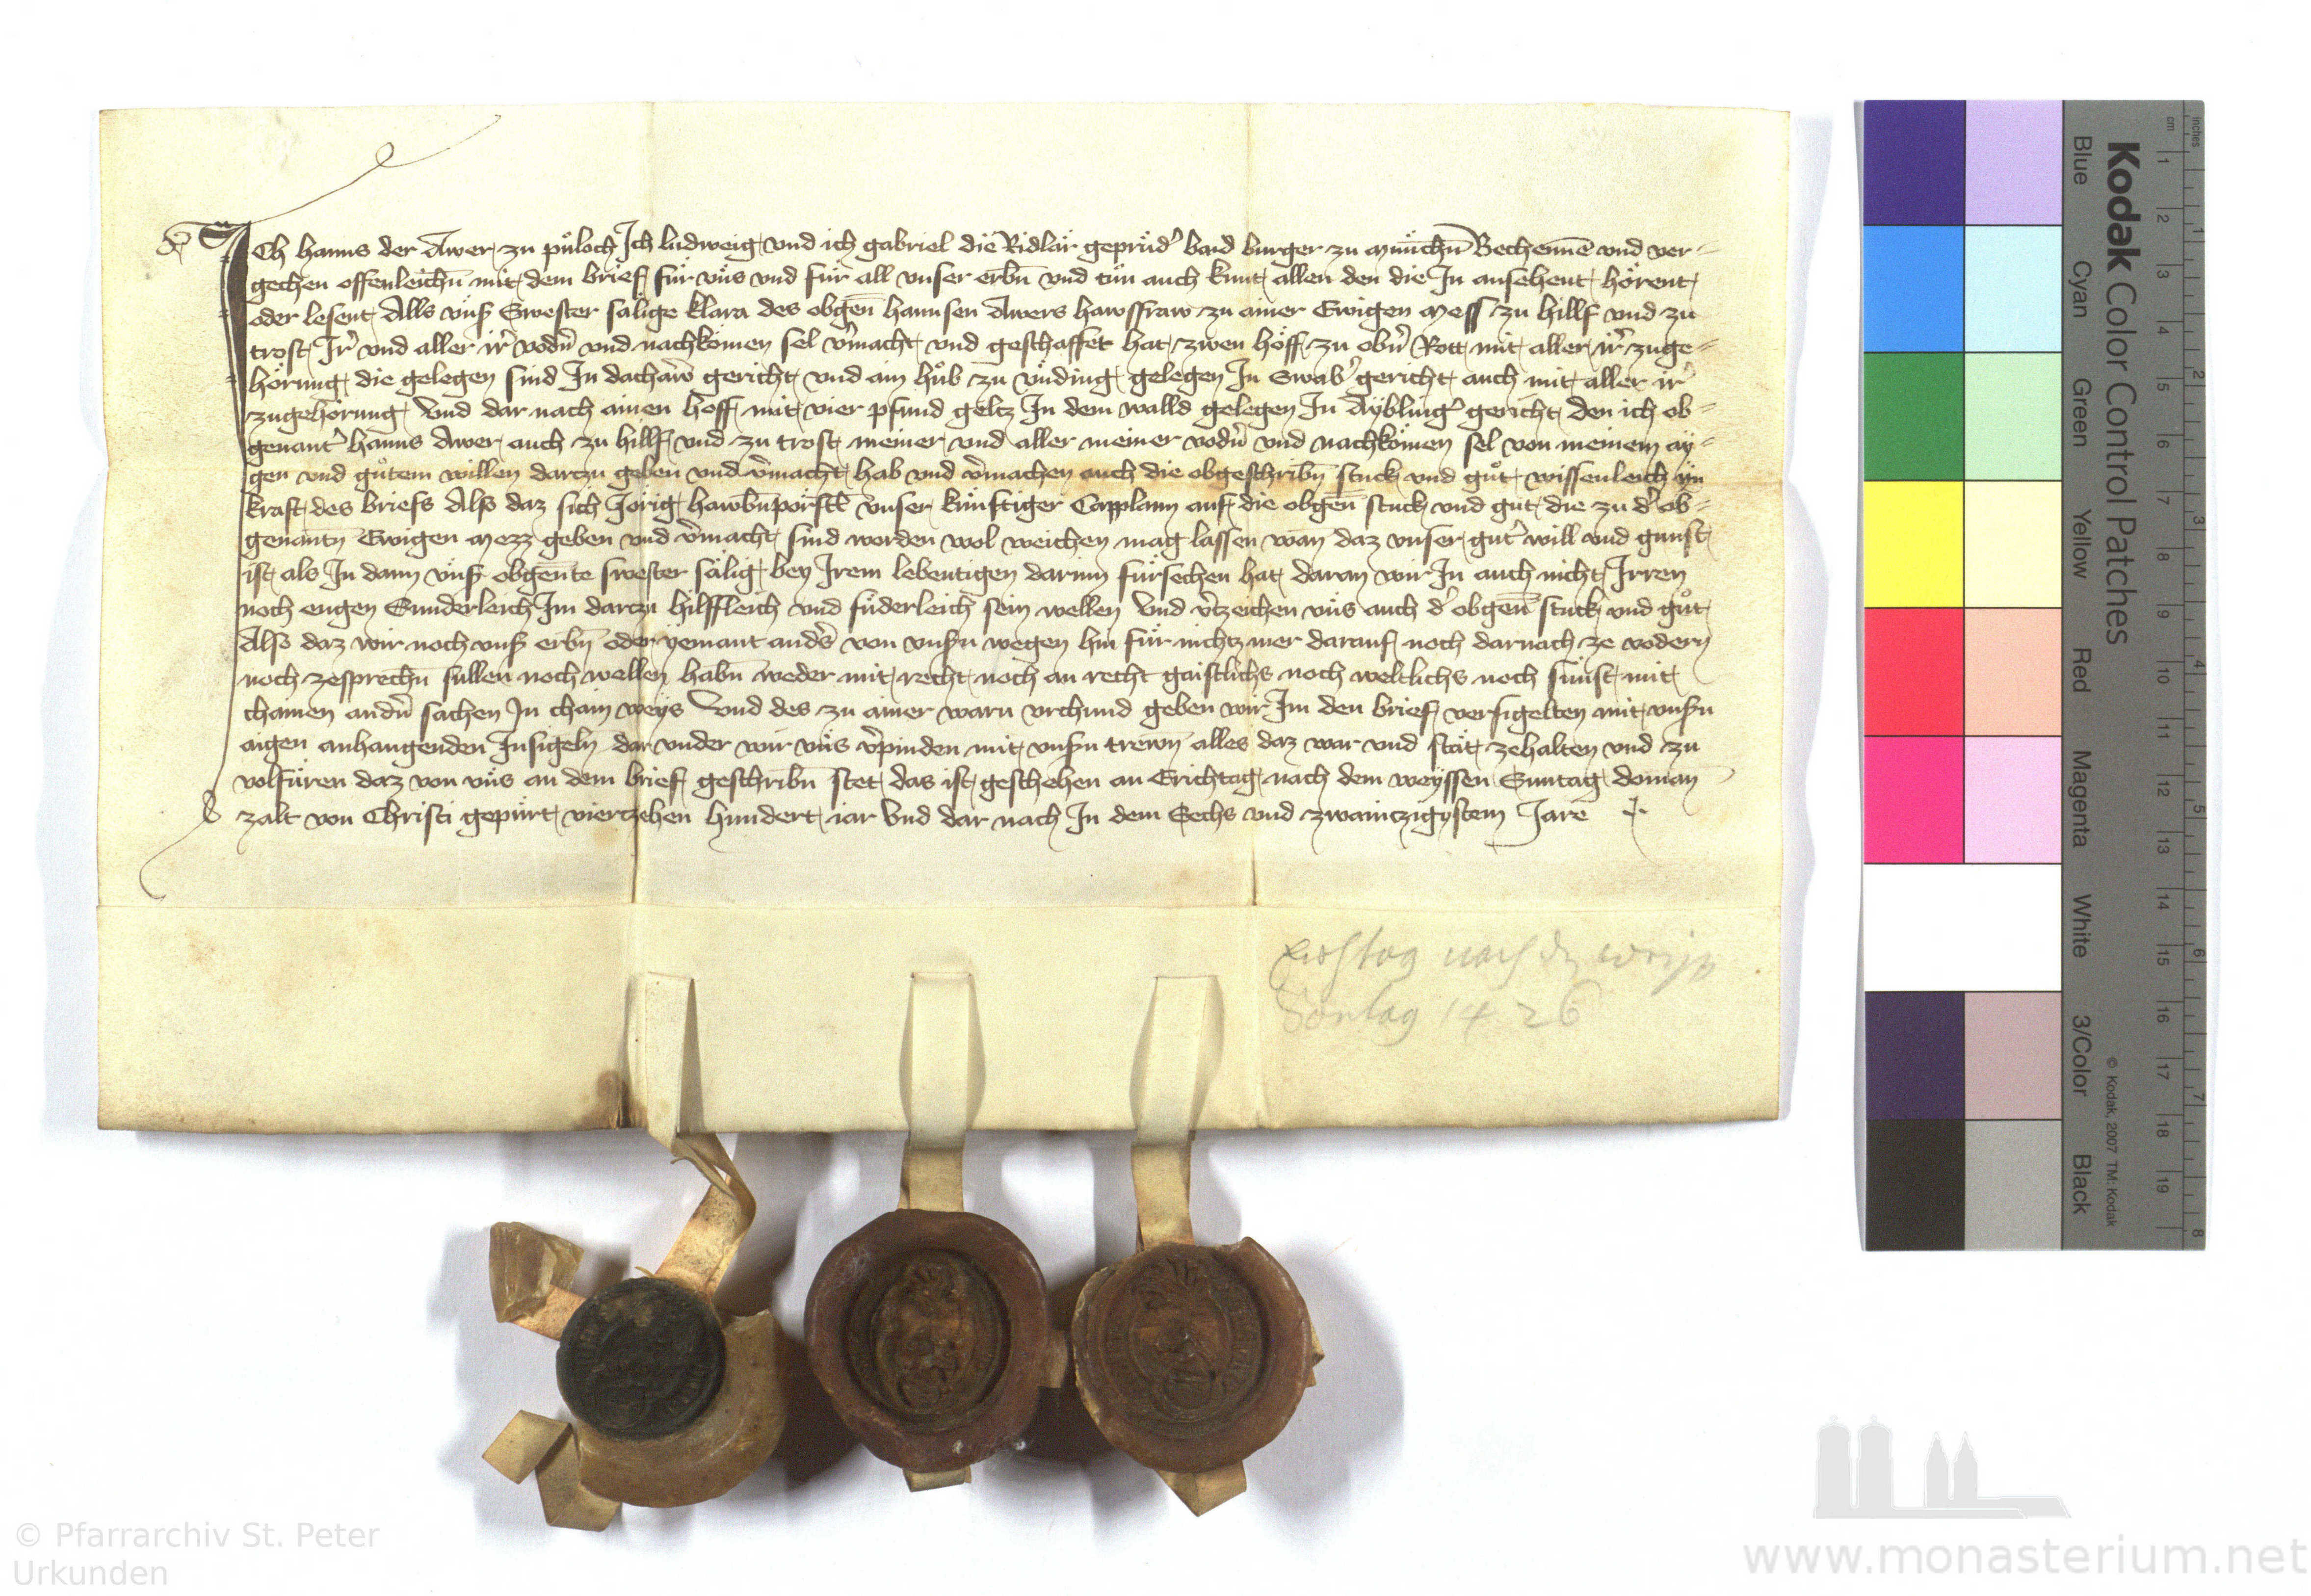 Ich hanns der Awer zu püloch Ich ludweig und ich gabriel die Ridlär geprüd' baid burger zu münichn̄ Bechennē und ver-
gechen offenleichn̄ mit dem brief für uns und für all unser erbn̄ und tün auch kunt allen den die In ansehent hörent
oder lesent Alls uns' Swester sälige klara des obgen̄ hannsen Awers hawsfraw zu ainer Ewigen mess zu hillf und zu
trost Ir' und aller ir' vodn̄ und nachkömen sel v'macht und geschaffet hat zwen höff zu obn̄ Rott mit aller ir' zuge-
hörung die gelegen sind In dachaw̄ gericht und ain hůb zu ünding gelegen In Swab' gericht auch mit aller ir'
zugehörung Und dar nach ainen hoff mit vier pfund geltz In dem walld gelegen In Äybling' gericht den ich ob-
genant' hanns Awer auch zu hillff und zu trost meiner und aller meiner vodn̄ und nachkömen sel von meinem ay-
gen und gůtem willen darczu geben und v'macht hab und v'machen auch die obgeschribn̄ stuck und gůt wissenleich yn
kraft des briefs Also daz sich Jorig unser künftiger Capplann auf die obgen̄ stuck und gut die zu d' ob-
genantn̄ Ewigen mezz geben und v'macht sind worden wol weichen mag lassen wan daz unser gut' will und gunst
ist als In dann uns' obgen̄te swester sälig bey Irem lebentigen darinn fürsechen hat daran wir In auch nicht Irren
noch engen Sunderleich Im darczu hilffleich und füderleich sein wellen Und v'tzeichen uns auch d' obgen̄ stuck und gůt
Also daz wir noch uns' erbn̄ oder yemant and's von unsn̄ wegen hin für nichtz mer darauf noch darnach ze vodern
noch zesprechn̄ süllen noch wellen habn̄ weder mit recht noch an recht gaistlichs noch weltlichs noch sünst mit
chainen andn̄ sachen In chain weys Und des zu ainer warn urchund geben wir Im den brief versigelten mit unsn̄
aigen anhangenden Insigeln dar under wir uns v'pinden mit unsn̄ trewn̄ alles daz war und stät zehalten und zu
volfüren daz von uns an dem brief geschribn̄ stet das ist geschehen an Erichtag nach dem weyssen Suntag doman
zalt von Christi gepürt viertzehen hundert iar Und dar nach In dem Sechs und zwainczigystem Jare
Erichtag nach d weyss
Sontag 1426
Kodak Color Control Patches
Blue Cyan Green Yellow Red Magenta White 3/Color Black
© Kodak, 2007 TM: Kodak
inches 1 2 3 4 5 6 7 8
cm 1 2 3 4 5 6 7 8 9 10 11 12 13 14 15 16 17 18 19
© Pfarrarchiv St. Peter
Urkunden
www.monasterium.net